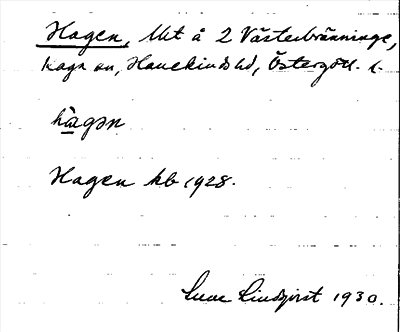 Hagen, lht å 2 Västerbränninge,
Kaga sn, Hanekinds hd, Östergötl. l.
hagən
Hagen kb 1928.
Sune Lindqvist 1930.